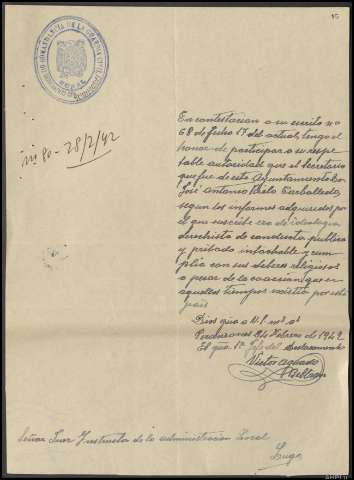 15
COMANDANCIA DE LA GUARDIA CIVIL
in go - 28/2/42
En contestación a su escrito nº
68 de fecha 17 del actual, tengo el
honor de participar a su respe
table autoridad que el Secretario
que fue de este Ayuntamiento
José Antonio Carballedo,
segun los informes adquiridos por
el que suscribe era de ideologia
derechista de conducta publica
y privada intachable y cum
plia con sus deberes religiosos
a pesar de la coacción que en
aquellos tiempos existia por este
pais
Dios gue a V.S. ms as
24 Febrero de 1942
El Gua 1º Jefe del Destacamento
Victor Aguado
Señor Juez Instructor de la administración Local
Lugo